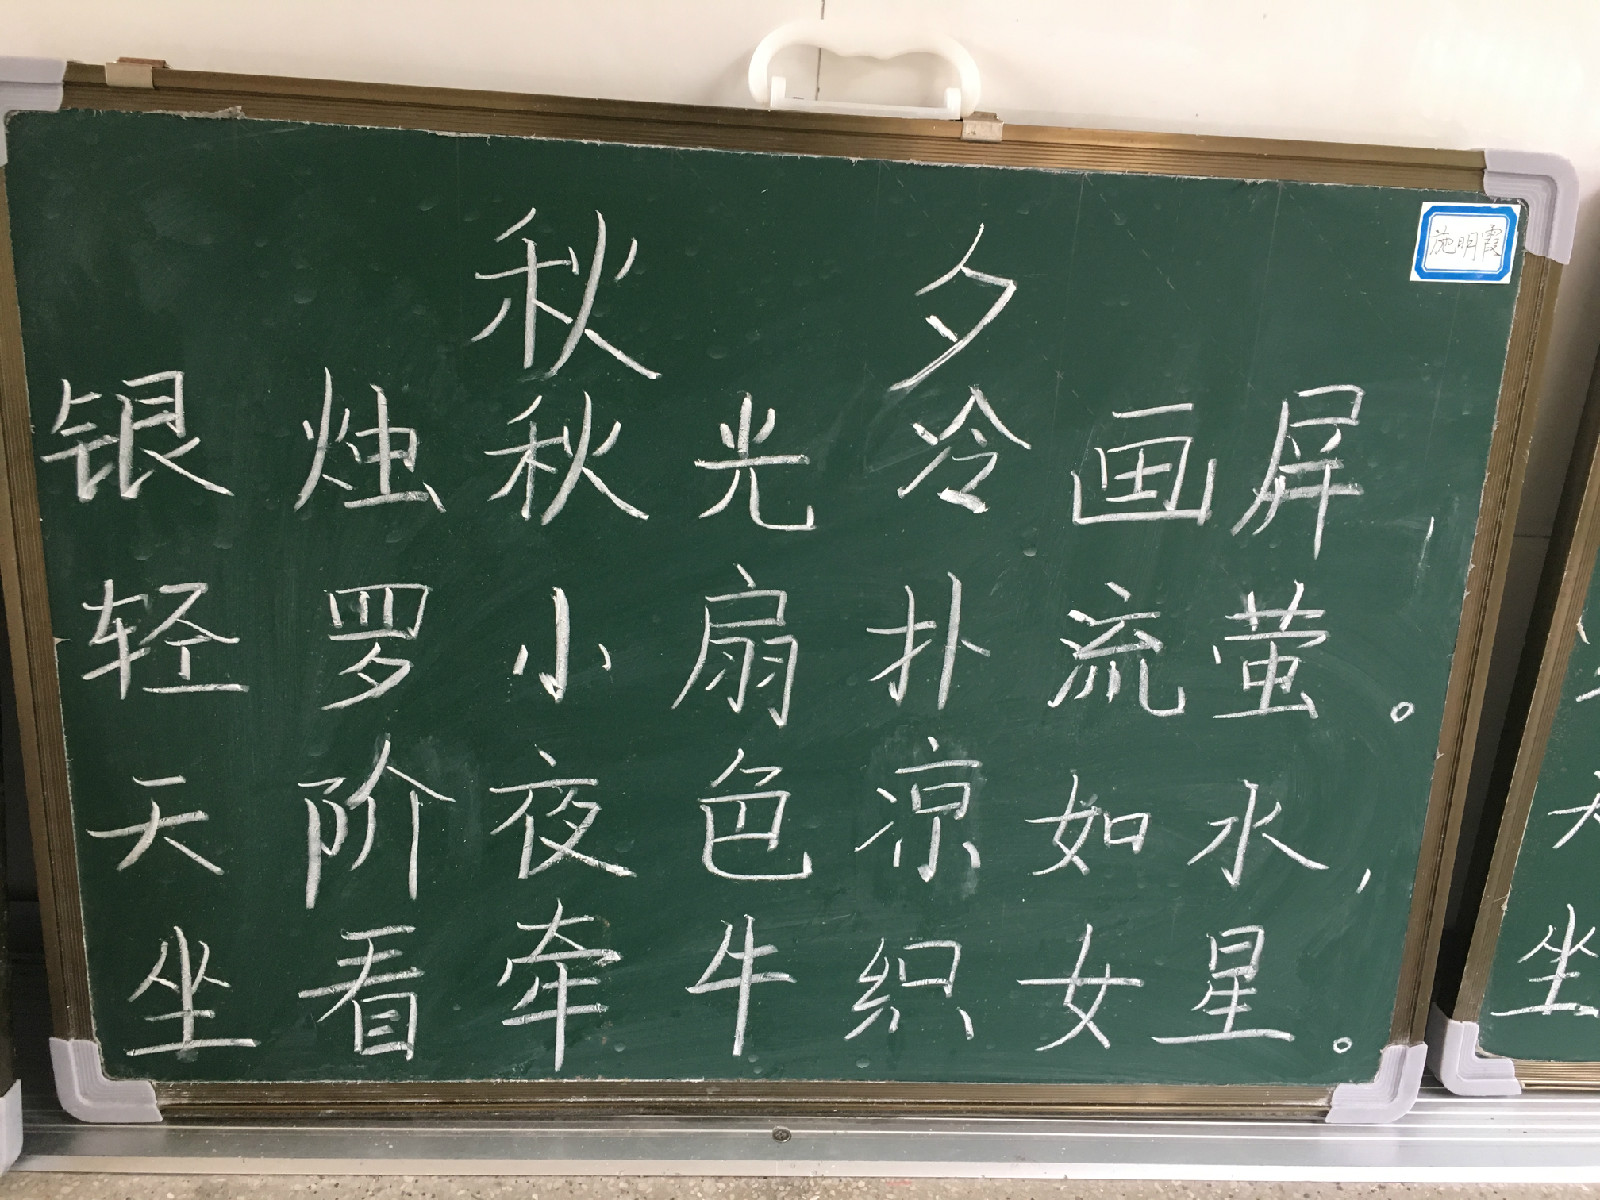 施明霞
秋夕
银烛秋光冷画屏，
轻罗小扇扑流萤。
天阶夜色凉如水，
坐看牵牛织女星。
坐